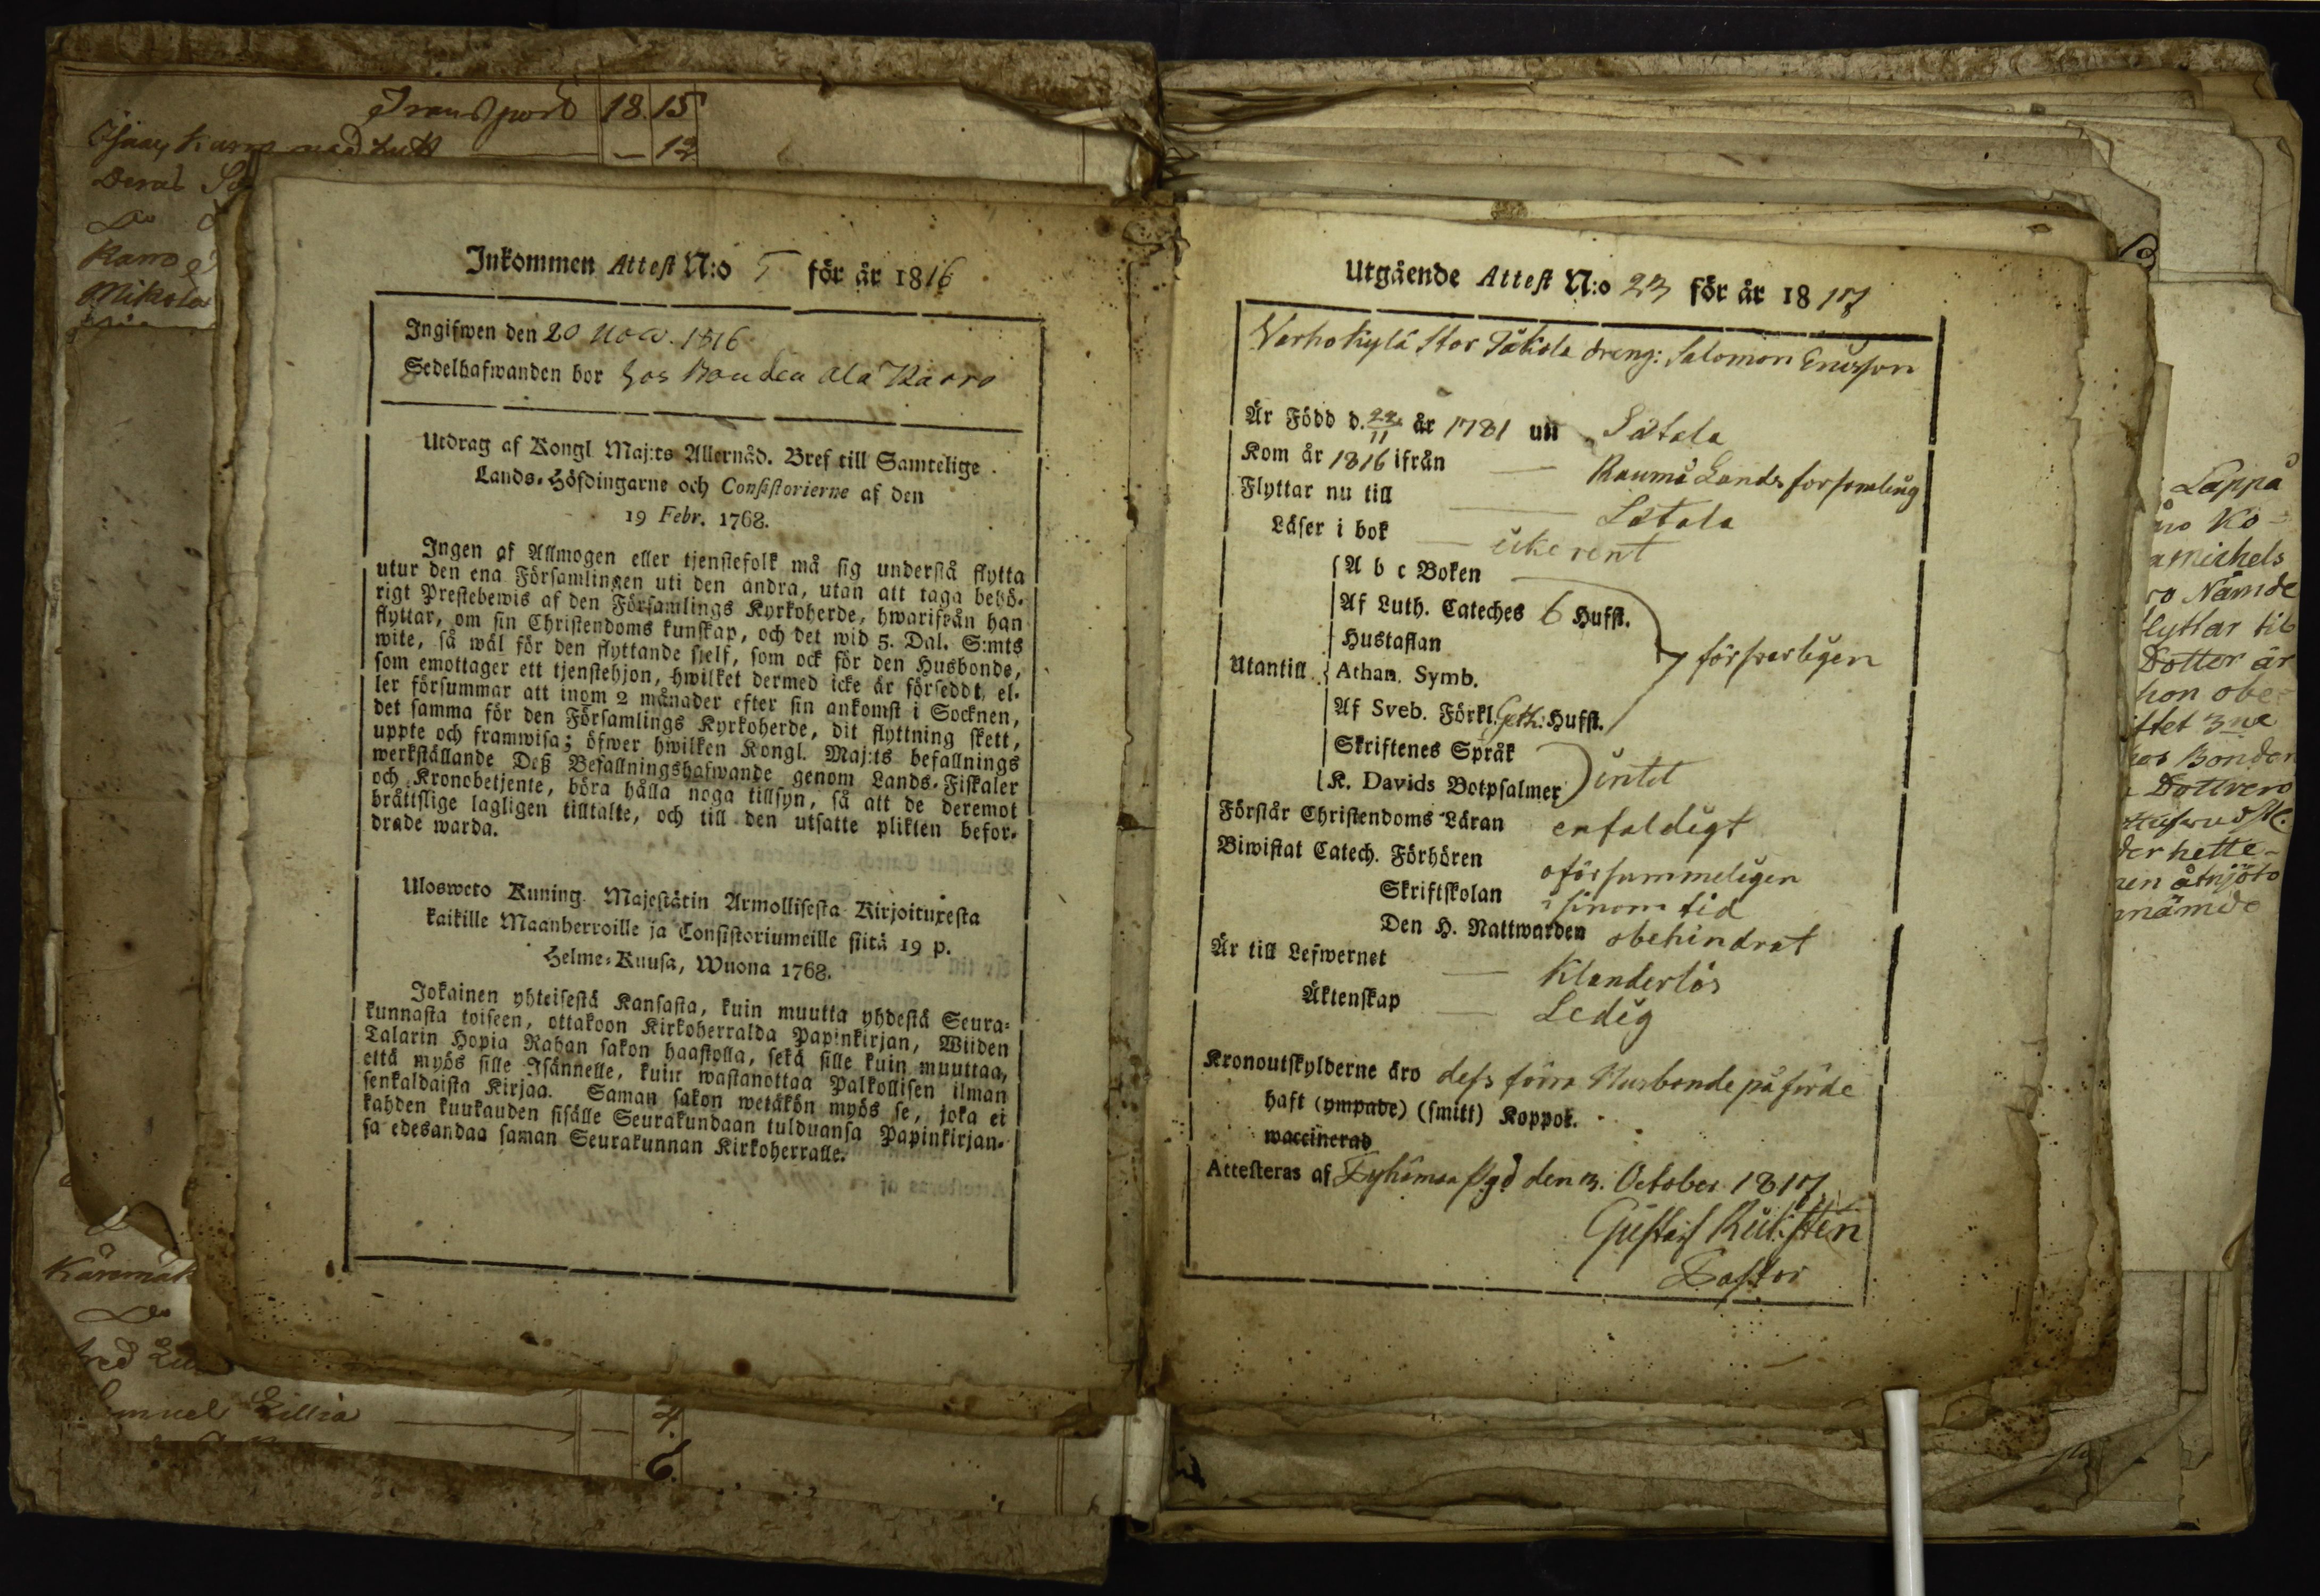 Transport 18. 15
— 12
Deras
Do
Karro
Mikola
Inkommen Attest N:o 5 för år 1816
Ingifwen den 20 Nov. 1816
Sedelhafwanden bor hos Bonden Ala Karro
Utdrag af Kongl. Maj:ts Allernåd. Bref till Samtelige
Lands-Höfdingarne och Consistorierne af den
19 Febr. 1768.
Ingen af Allmogen eller tjenstefolk må sig understå flytta
utur den ena Församlingen uti den andra, utan att taga behö-
rigt Prestebewis af den Församlings Kyrkoherde, hwarifrån han
flyttar, om sin Christendoms kunskap, och det wid 5. Dal. S:mts
wite, så wäl för den flyttande sjelf, som ock för den Husbonde,
som emottager ett tjenstehjon, hwilket dermed icke är försedt, el-
ler försummar att inom 2 månader efter sin ankomst i Socknen,
det samma för den Församlings Kyrkoherde, dit flyttning skett,
uppte och framwisa; öfwer hwilken Kongl. Maj:ts befallnings
werkställande Deß Befallningshafwande genom Lands-Fiskaler
och Kronobetjente, böra hålla noga tillsyn, så att de deremot
bråttslige lagligen tilltalte, och till den utsatte plikten befor-
drade warda.
Ulosweto Kuning. Majestätin Armollisesta Kirjoituxesta
kaikille Maanherroille ja Consistoriumeille siitä 19 p.
Helme-Kuusa, Wuona 1768.
Jokainen yhteisestä Kansasta, kuin muutta yhdestä Seura-
kunnasta toiseen, ottakoon Kirkoherralda Papinkirjan, Wiiden
Talarin Hopia Rahan sakon haastolla, sekä sille kuin muuttaa,
että myös sille Isännelle, kuin wastanottaa Palkollisen ilman
senkaldaista Kirjaa. Saman sakon wetäkön myös se, joka ei
kahden kuukauden sisälle Seurakundaan tulduansa Papinkirjan-
sa edesandaa saman Seurakunnan Kirkoherralle.
Do
Samuel Lillia — 4.
6.
Utgående Attest N:o 23 för år 1817
Varhokylä Stor Jäkola dreng: Salomon Ericsson
Är Född d. 22/11 år 1781 uti Lätala
Kom år 1816 ifrån — Raumå Lands forsamling
Flyttar nu till — Lätala
Läser i bok — icke rent
A b c Boken
Af Luth. Cateches 6 Hufst.
Hustaflan
Utantill Athan. Symb. försvarligen
Af Sveb. Förkl. Geth: Hufst.
Skriftenes Språk
K. Davids Botpsalmer intet
Förstår Christendoms Läran enfaldigt
Biwistat Catech. Förhören oförsummeligen
Skriftskolan i sinom tid
Den H. Nattwarden obehindrat
Är till Lefwernet — Klanderlös
Äktenskap — Ledig
Kronoutskylderne äro dess förra Husbonde påförde
haft (ympade) (smitt) Koppor.
waccinerad
Attesteras af Pyhämaa Pgd den 3. October 1817
Gustaf
Pastor
Lappå
Ko-
michels
Nämde
flyttar til
Dotter är
hon obe-
Bonden
der hette-
åtnjöto
nämde